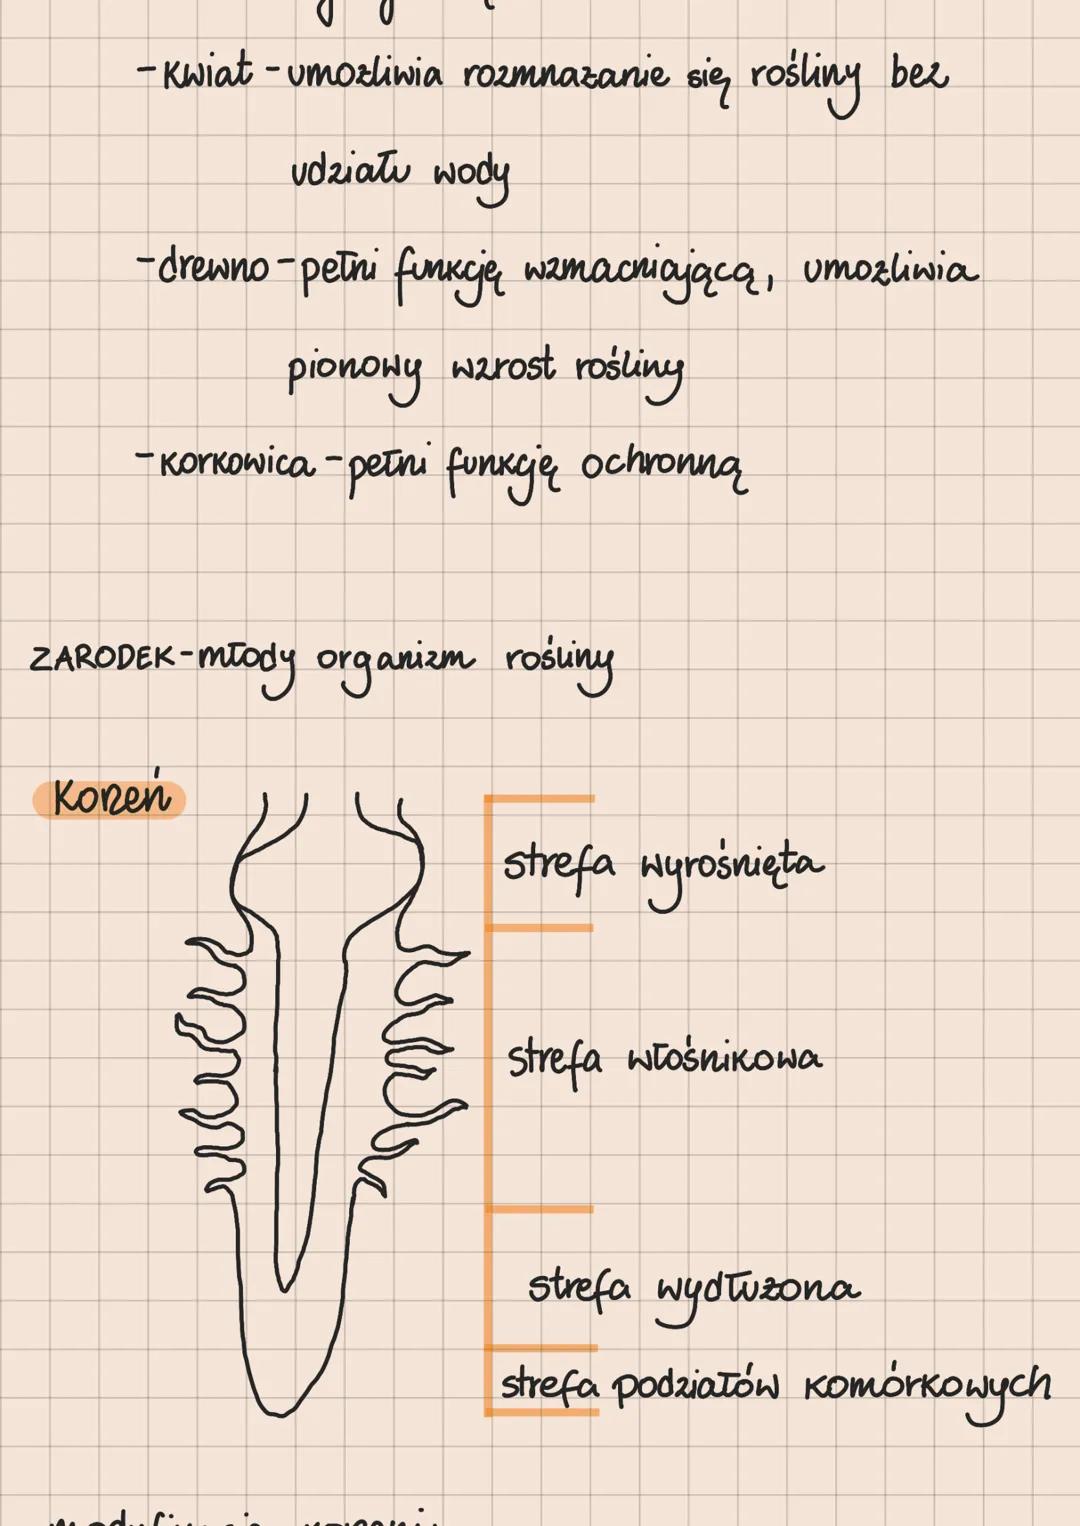 -kwiat - umożliwia rozmnażanie się rośliny bez
udziału wody
-drewno - pełni funkcję wzmacniającą, umożliwia
pionowy wzrost rośliny
-korkowica - pełni funkcję ochronną
ZARODEK - młody organizm rośliny
Korzeń
strefa wyrośnięta
strefa włośnikowa
strefa wydłużona
strefa podziałów komórkowych